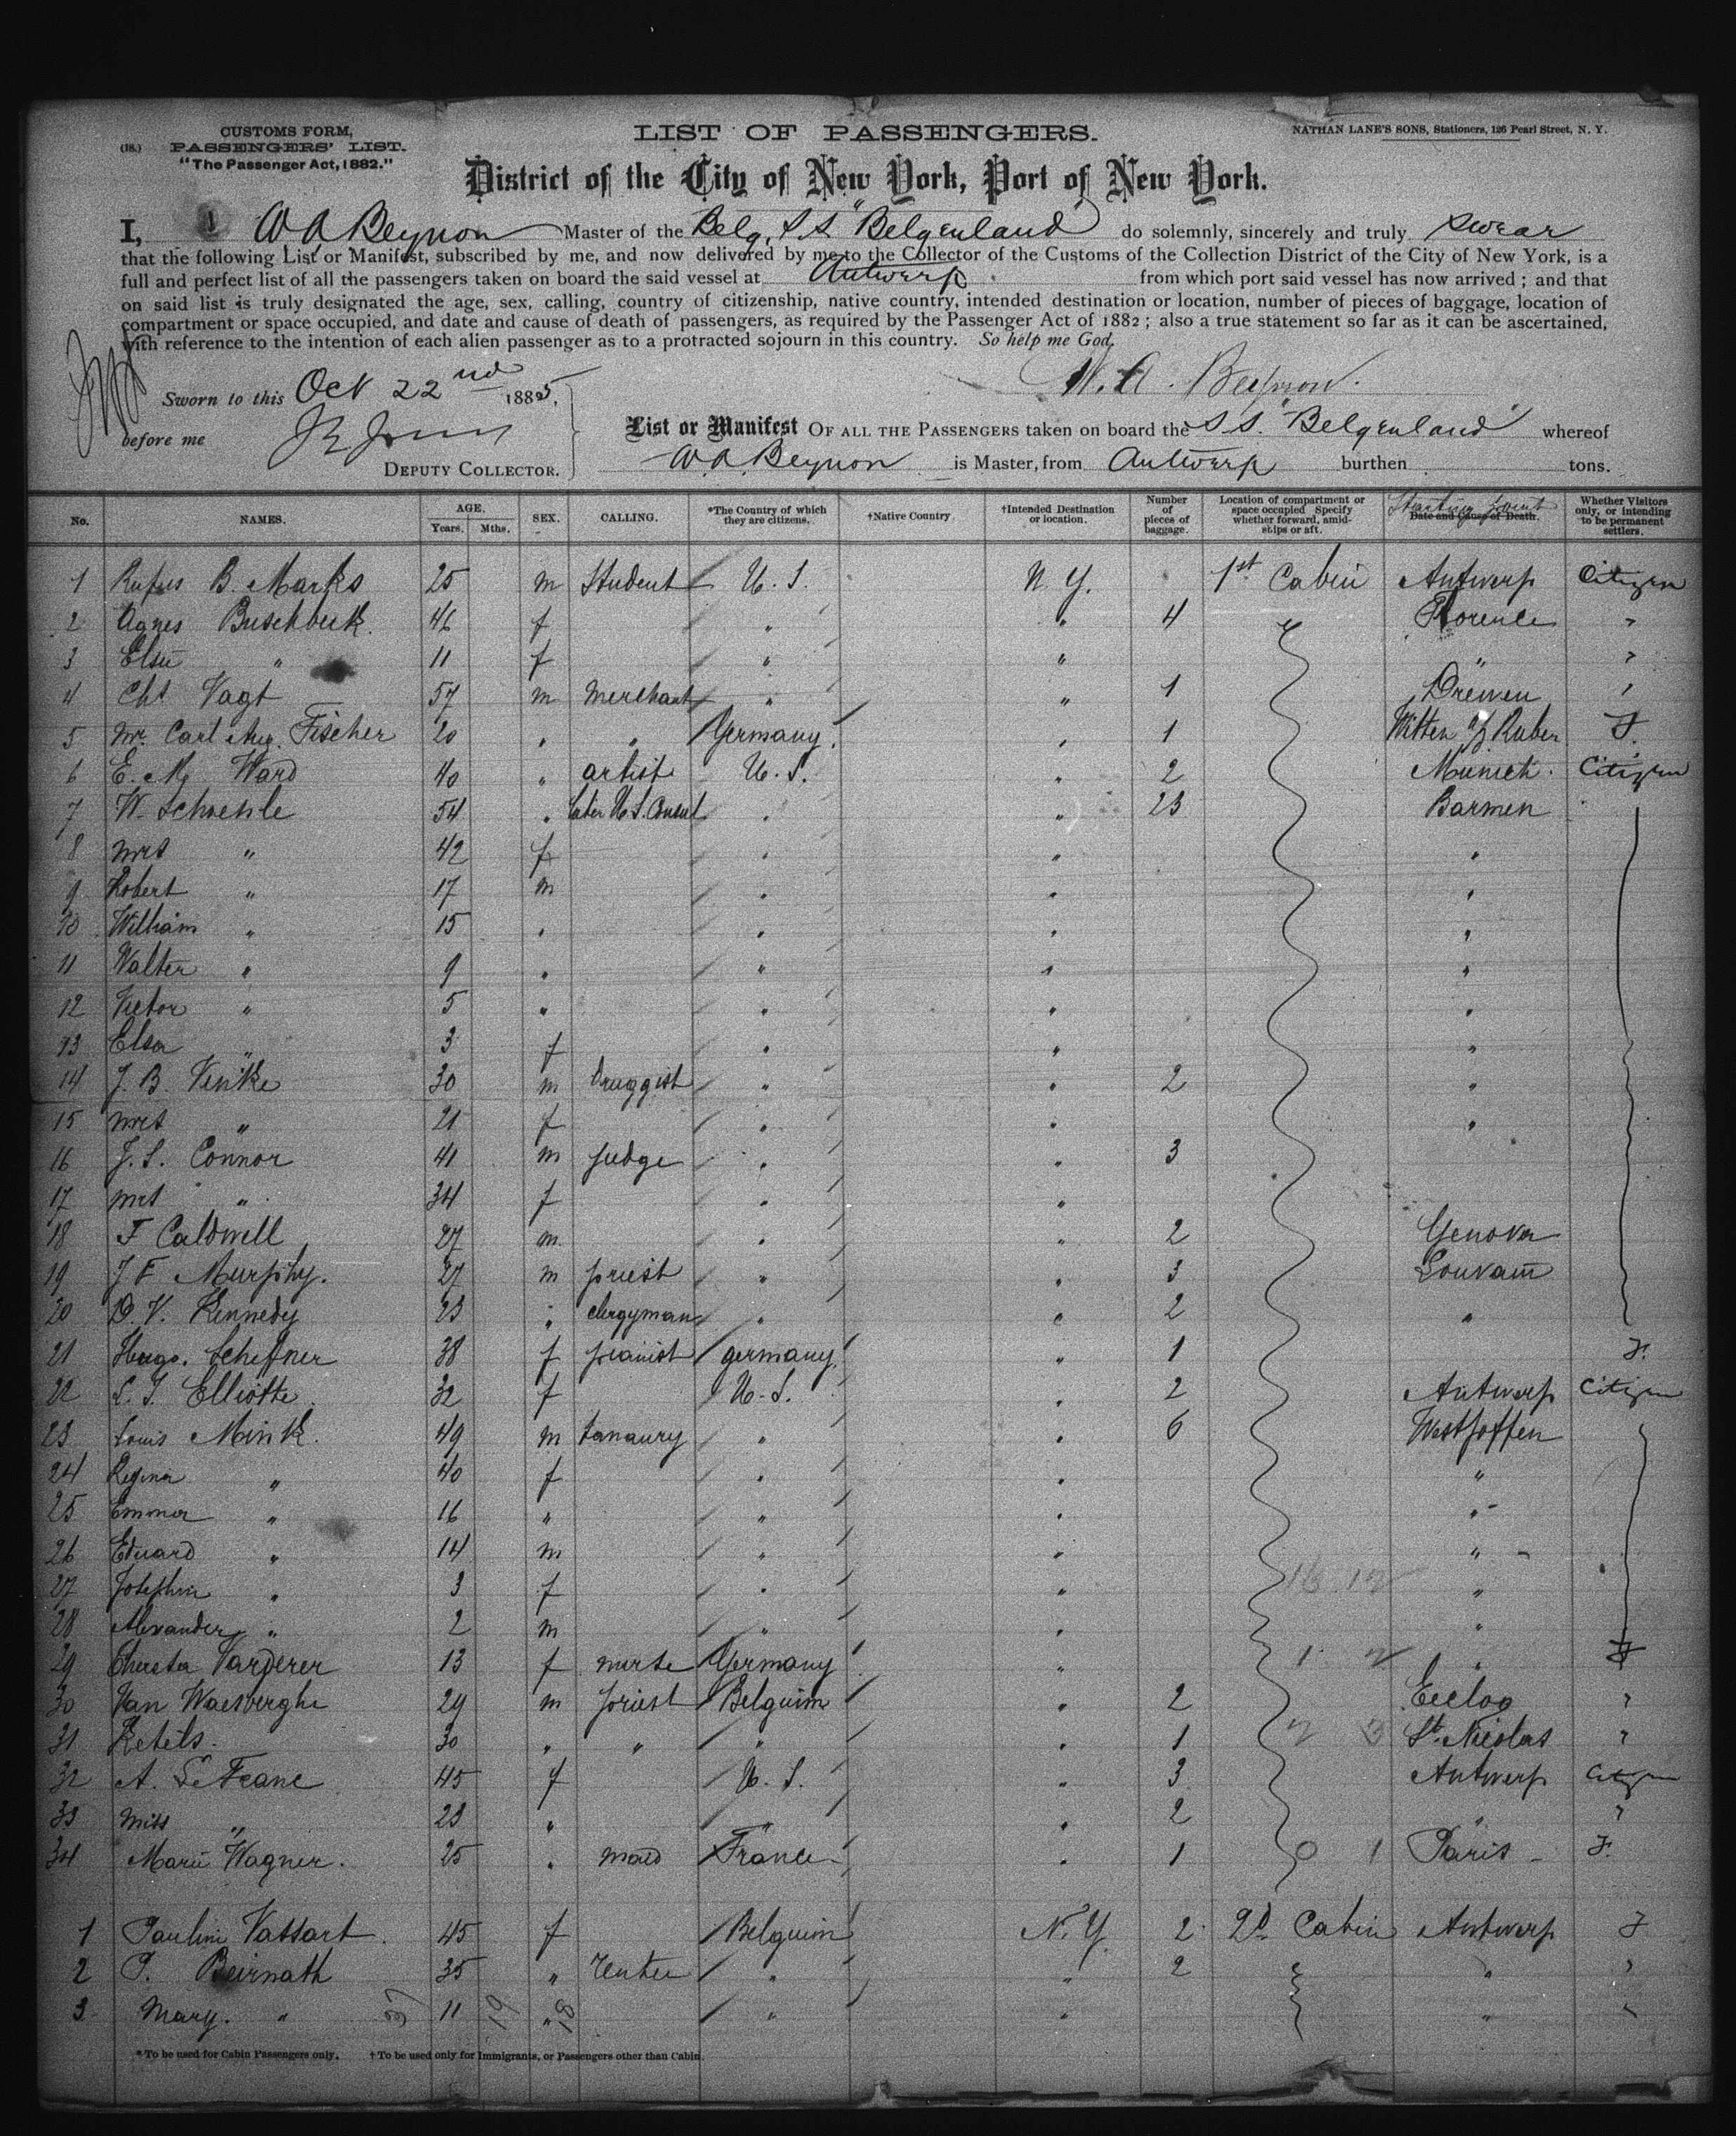 CUSTOMS FORM,
(18.) PASSENGERS' LIST.
"The Passenger Act, 1882."
LIST OF PASSENGERS.
NATHAN LANE'S SONS, Stationers, 126 Pearl Street, N. Y.
District of the City of New York, Port of New York.
I, W A Beynon Master of the Belg. S.S. "Belgenland" do solemnly, sincerely and truly swear
that the following List or Manifest, subscribed by me, and now delivered by me to the Collector of the Customs of the Collection District of the City of New York, is a
full and perfect list of all the passengers taken on board the said vessel at Antwerp from which port said vessel has now arrived ; and that
on said list is truly designated the age, sex, calling, country of citizenship, native country, intended destination or location, number of pieces of baggage, location of
compartment or space occupied, and date and cause of death of passengers, as required by the Passenger Act of 1882 ; also a true statement so far as it can be ascertained,
with reference to the intention of each alien passenger as to a protracted sojourn in this country. So help me God.
W. A. Beynon.
Sworn to this Oct 22nd 1885,
before me
DEPUTY COLLECTOR.
List or Manifest OF ALL THE PASSENGERS taken on board the S.S. "Belgenland" whereof
W A Beynon is Master, from Antwerp burthen tons.
No. NAMES. AGE. Years. Mths. SEX. CALLING. *The Country of which they are citizens. †Native Country †Intended Destination or location. Number of pieces of baggage. Location of compartment or space occupied Specify whether forward, amidships or aft. Starting point Date and Cause of Death. Whether Visitors only, or intending to be permanent settlers.
1 Rufus B. Marks 25 m Student U. S. N. Y. 1st Cabin Antwerp Citizen
2 Agnes Buschbeck 46 f " " 4 Florence "
3 Elsie " 11 f " " " "
4 Chs Vagt 57 m Merchant " " 1 "
5 Mr. Carl Aug. Fischer 20 " " Germany " 1 Witten
6 E. M. Ward 40 " artist U. S. " 2 Munich. Citizen
7 W. Schoenle 54 " U. S. Consul " " 23 Barmen
8 Mrs " 42 f " " "
9 Robert " 17 m " " "
10 William " 15 " " " "
11 Walter " 9 " " " "
12 Victor " 5 " " " "
13 Elsa " 3 f " " "
14 J. B. Venke 30 m Druggist " " 2 "
15 Mrs " 21 f " " "
16 J. S. Connor 41 m Judge " " 3
17 Mrs " 34 f " "
18 F Caldwell 27 m " " 2 Genova
19 J F Murphy. 27 m priest " " 3 Louvain
20 D. V. Kennedy 23 " clergyman " " 2 "
21 Hugo. Scheffner 38 f pianist germany " 1 F.
22 L. J. Elliotte 32 f U. S. " 2 Antwerp Citizen
23 Louis Mink. 49 m tanaury " " 6 Westhoffen
24 Regina " 40 f " " "
25 Emma " 16 " " " "
26 Eduard " 14 m " " "
27 Josephin " 3 f " " "
28 Alexander " 2 m " " "
29 13 f nurse Germany " "
30 Van Waesberghe 29 m priest Belguim " 2 Eecloo "
31 Ketels. 30 " " " " 1 St. Nicolas "
32 A. 45 f U. S. " 3 Antwerp Citizen
33 Miss " 23 " " " 2 " "
34 Marie Wagner. 25 " maid France " 1 Paris F.
1 Pauline Vassart. 45 f Belguim N. Y. 2 2d Cabin Antwerp F
2 P. Beirnath 35 " " " 2 " "
3 Mary. " 11 " " " " "
* To be used for Cabin Passengers only. † To be used only for Immigrants, or Passengers other than Cabin.